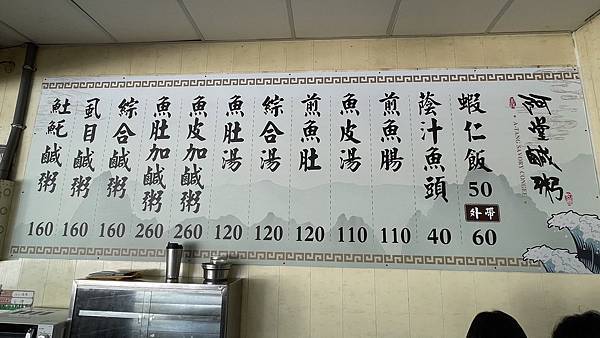 阿堂鹹粥
A-TANG SAVORY CONGEE
蝦仁飯 50
外帶 60
蔭汁魚頭 40
煎魚腸 110
魚皮湯 110
煎魚肚 120
綜合湯 120
魚肚湯 120
魚皮加鹹粥 260
魚肚加鹹粥 260
綜合鹹粥 160
虱目鹹粥 160
𩵚魠鹹粥 160